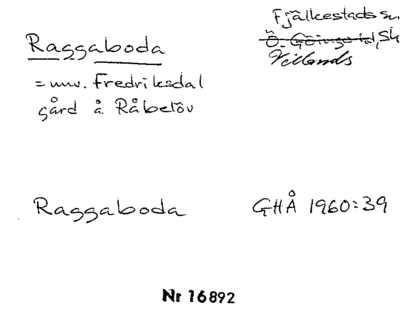 Fjälkestads sn
Raggaboda
Ö. Göinge hd, Sk
Villands
= nuv. Fredriksdal
gård å Råbelöv
Raggaboda GHÅ 1960:39
Nr 16892